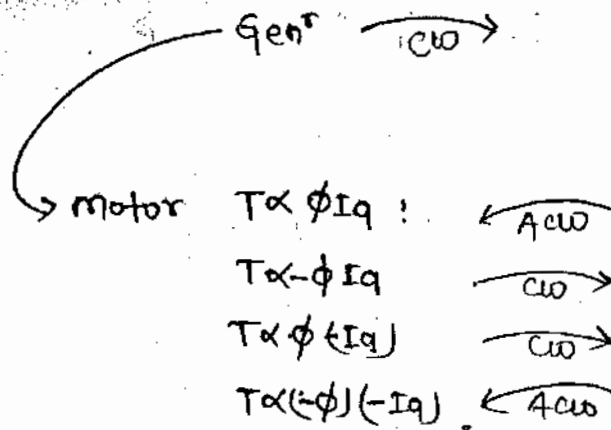 Genʳ CW
motor T∝ ϕIa : ACW
T∝-ϕIa CW
T∝ϕ(-Ia) CW
T∝(-ϕ)(-Ia) ACW